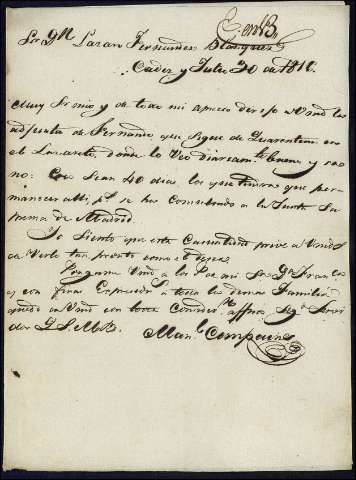 Sr Dn Lazaro Fernandez Blazquez
Cadiz y Julio 30 de 181
Muy Sr mio y de todo mi aprecio dexo a Vmd la
adjunta de Fernando que sigue de Quarentena en
el Lazareto, donde lo veo diariamte bueno y sa
no: Con sean 40 dias los que tendra que per
manecer alli, ps se ha consultado a la Junta Su
prema de Madrid.
Yo siento que esta casualidad prive a Vmds
de verlo tan pronto como el desea.
Pongame Vmd a los Ps de mi Sra Da Franca
y con finas Expresions a toda la demas Familia
quedo de Vmd con toda considn affmo Sego Servi
dor Q S M B
Manl